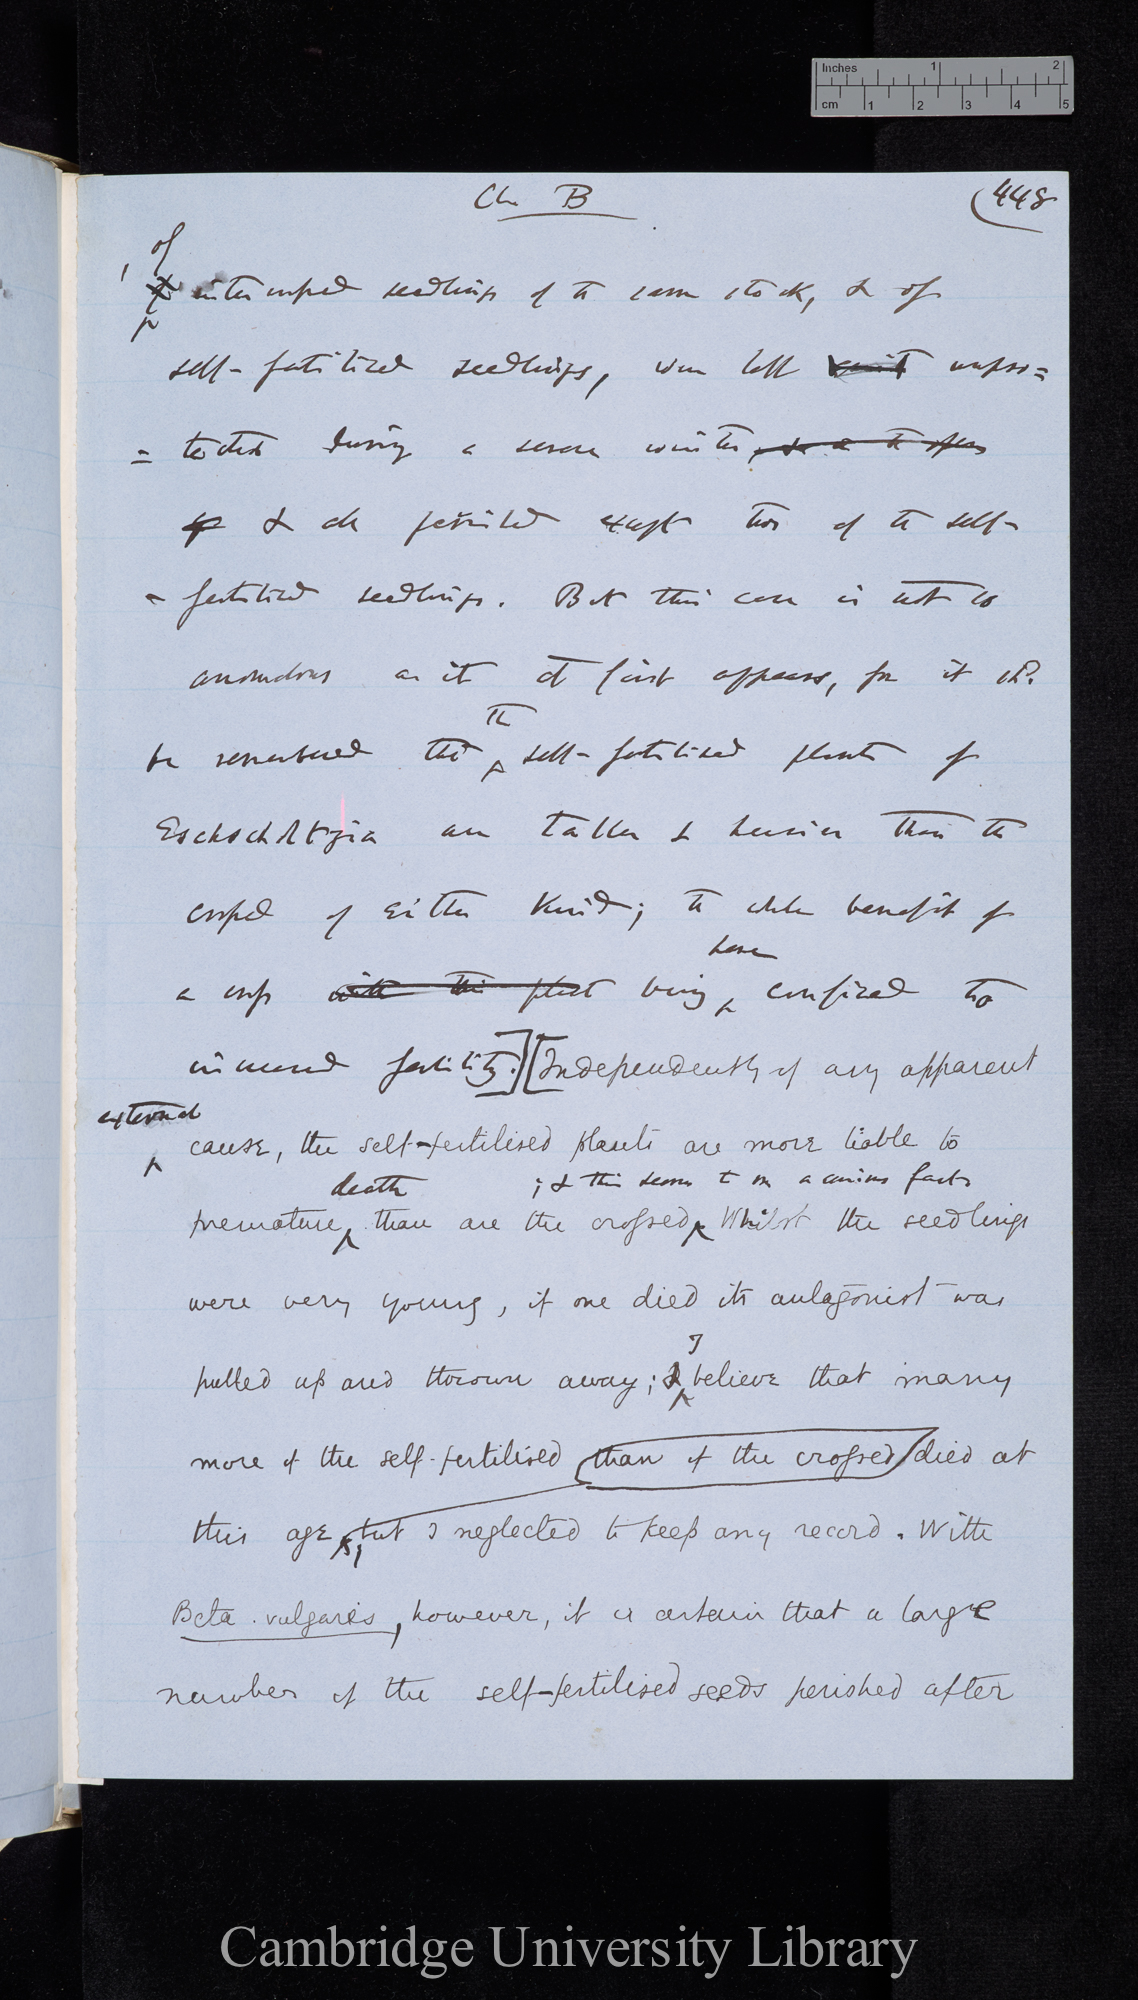 Inches 1 2
cm 1 2 3 4 5
Ch B
(448
of
intercrossed seedlings of the same stock, & of
self-fertilized seedlings, were left unpro=
=tected during a severe winter,
& all perished except two of the self-
-fertilised seedlings. But this case is not so
anomalous as it at first appears, for it shd.
the
be remembered that self-fertilised plants of
Eschscholtzia are taller & heavier than the
crossed of either kind; the whole benefit of
here
a cross with this plant being confined to
increased fertility.] [Independently of any apparent
external
cause, the self-fertilised plants are more liable to
death ; & this seems to me a curious fact.
premature than are the crossed Whilst the seedlings
were very young, if one died its antagonist was
I
pulled up and thrown away; & believe that many
more of the self-fertilised than of the crossed died at
this age, but I neglected to keep any record. With
Beta vulgaris, however, it is certain that a large
number of the self-fertilised seeds perished after
Cambridge University Library